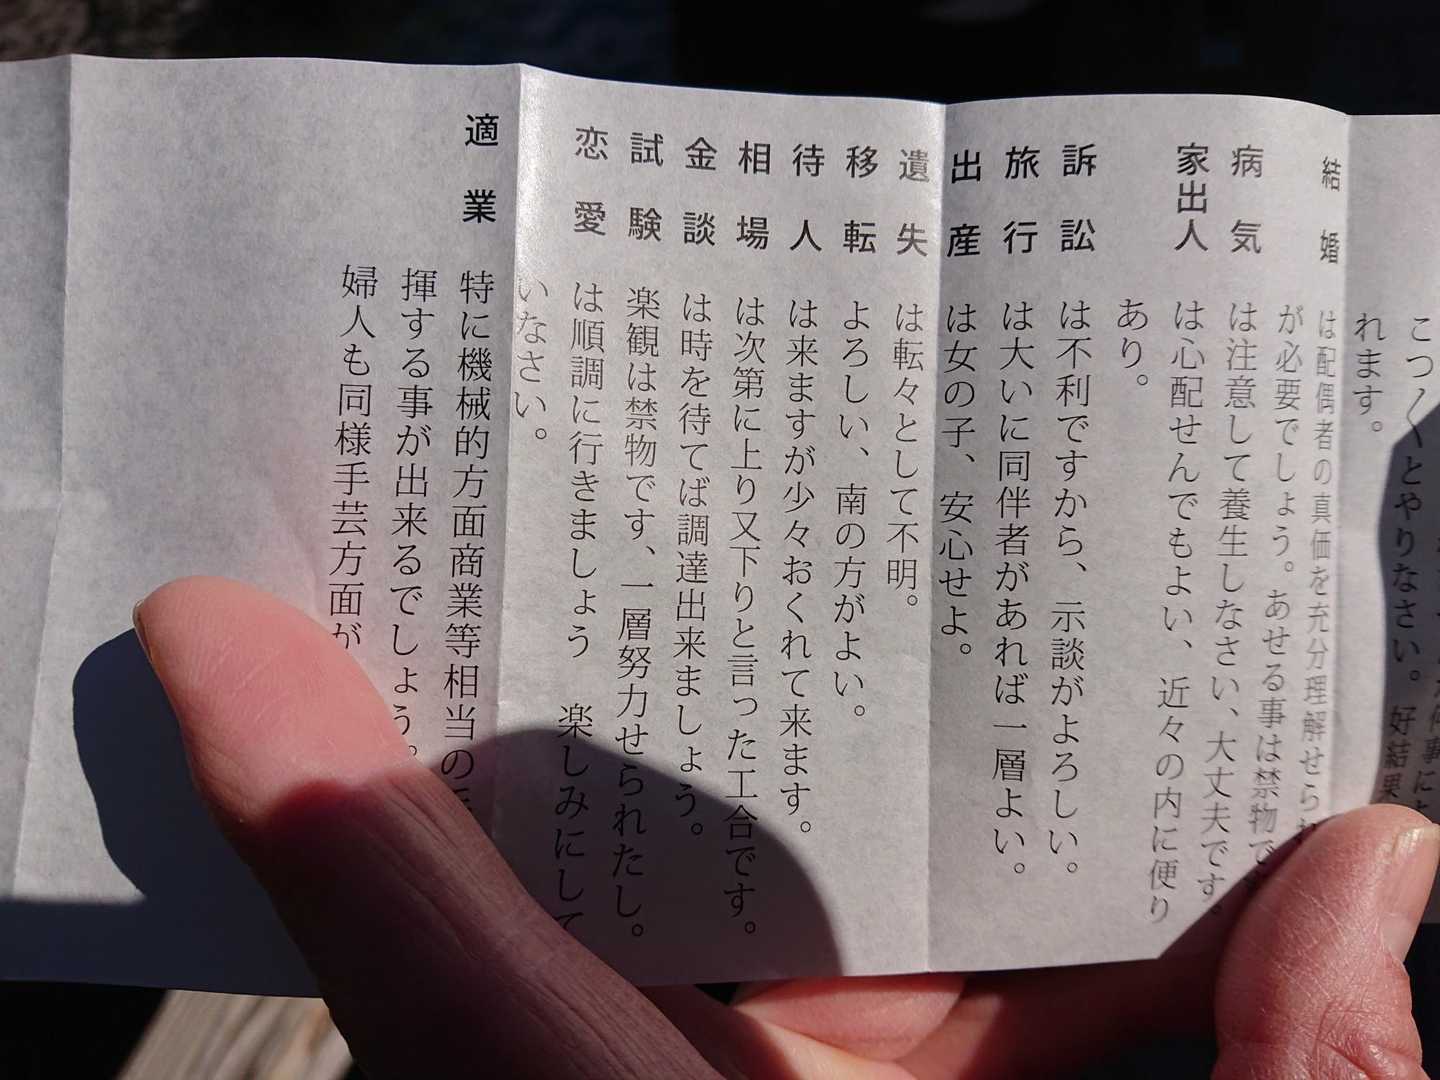 こつ〱とやりなさい。好結果
れます。
結婚 は配偶者の真価を充分理解せら
が必要でしょう。あせる事は禁物で
病気 は注意して養生しなさい、大丈夫です。
家出人 は心配せんでもよい、近々の内に便り
あり。
訴訟 は不利ですから、示談がよろしい。
旅行 は大いに同伴者があれば一層よい。
出産 は女の子、安心せよ。
遺失 は転々として不明。
移転 よろしい、南の方がよい。
待人 は来ますが少々おくれて来ます。
相場 は次第に上り又下りと言った工合です。
金談 は時を待てば調達出来ましょう。
試験 楽観は禁物です、一層努力せられたし。
恋愛 は順調に行きましょう 楽しみにして
いなさい。
適業 特に機械的方面商業等相当の
揮する事が出来るでしょう。
婦人も同様手芸方面が